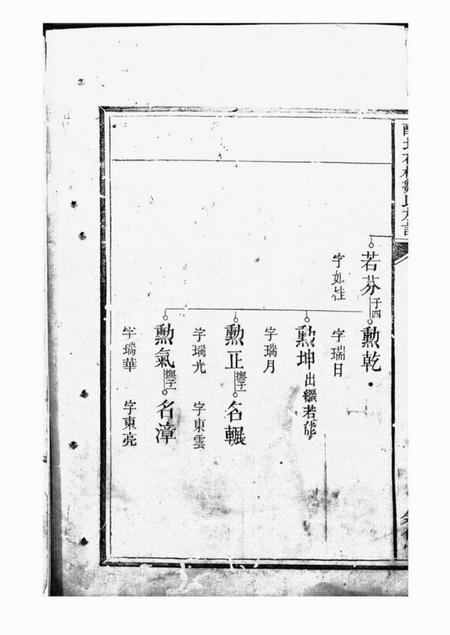 若芬 子四
字如桂
勲乾
字瑞日
勲坤 出繼若
字瑞月
勲正
名輾
字瑞光
字東雲
勲氣
名漳
字瑞華
字東亮